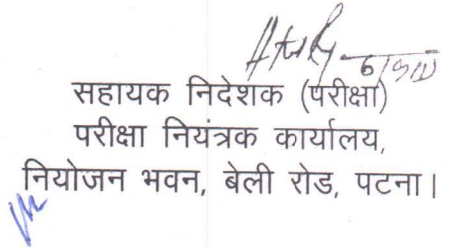 सहायक निदेशक (परीक्षा)
परीक्षा नियंत्रक कार्यालय,
नियोजन भवन, बेली रोड, पटना।